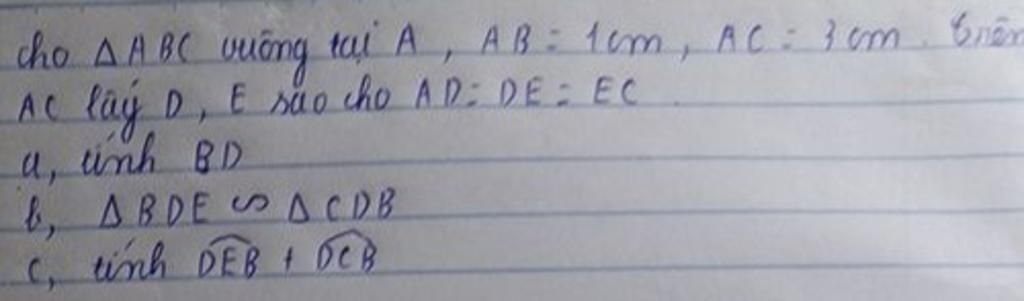 cho △ABC vuông tại A, AB = 1cm, AC = 3cm. trên
AC lấy D, E sao cho AD = DE = EC
a, tính BD
b, △BDE ∽ △CDB
c, tính \widehat{DEB} + \widehat{DCB}